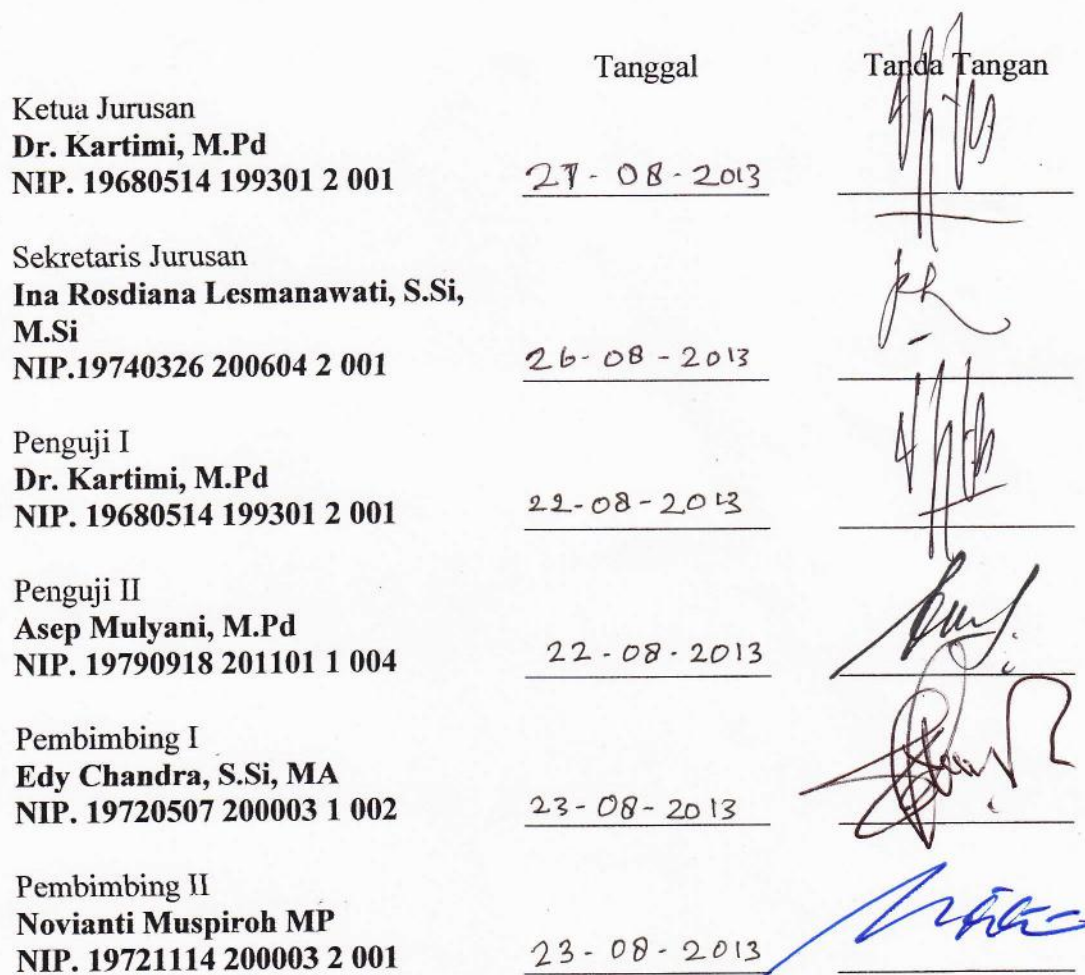 Tanggal Tanda Tangan
Ketua Jurusan
Dr. Kartimi, M.Pd
NIP. 19680514 199301 2 001 27-08-2013
Sekretaris Jurusan
Ina Rosdiana Lesmanawati, S.Si,
M.Si
NIP.19740326 200604 2 001 26-08-2013
Penguji I
Dr. Kartimi, M.Pd
NIP. 19680514 199301 2 001 22-08-2013
Penguji II
Asep Mulyani, M.Pd
NIP. 19790918 201101 1 004 22-08-2013
Pembimbing I
Edy Chandra, S.Si, MA
NIP. 19720507 200003 1 002 23-08-2013
Pembimbing II
Novianti Muspiroh MP
NIP. 19721114 200003 2 001 23-08-2013